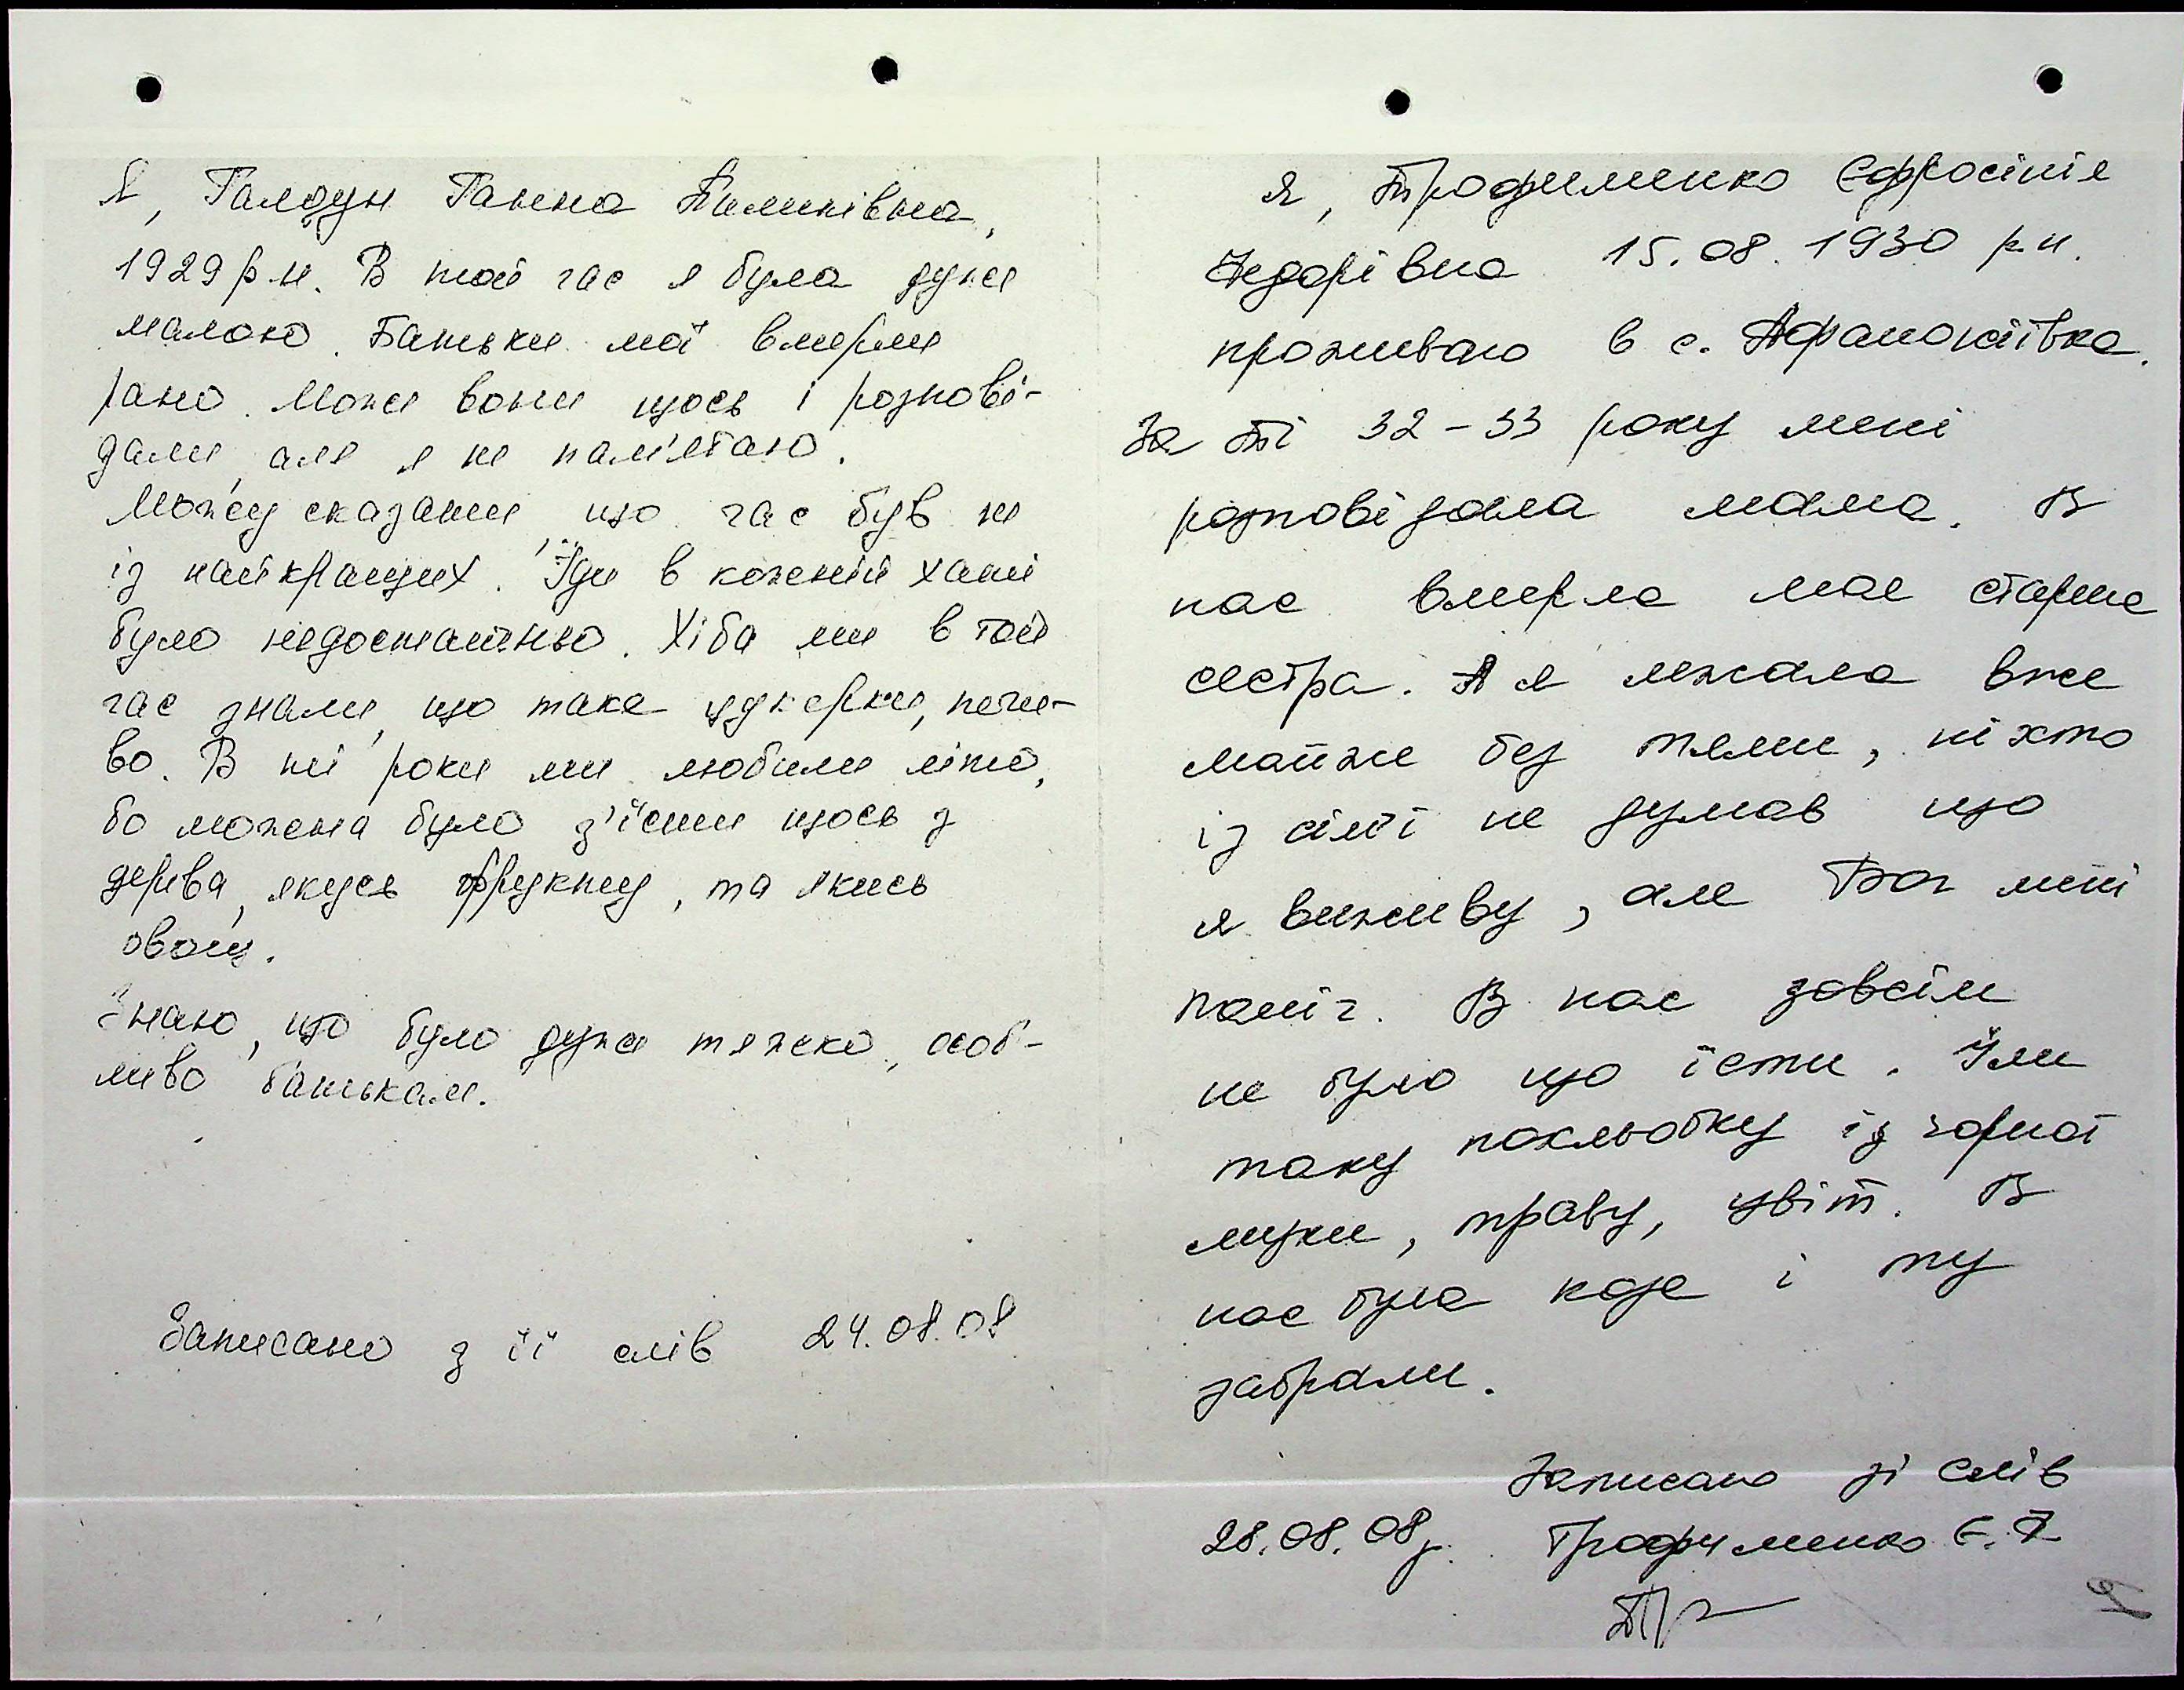 Я, Галдун Ганна Пилипівна,
1929 р.н. В той час я була дуже
малою. Батьки мої вмерли
рано. Може вони щось і розпові-
дали, але я не пам'ятаю.
Можу сказати, що час був не
із найкращих. Їди в кожній хаті
було недостатньо. Хіба ми в той
час знали, що таке цукерки, печи-
во. В ті роки ми любили літо,
бо можна було з'їсти щось з
дерева, якусь фрукту, та якись
овощ.
Знаю, що було дуже тяжко, особ-
ливо батькам.
Записано з її слів 24.08.08
Я, Трофименко Єфросінія
Федорівна 15.08.1930 р.н.
проживаю в с. Афанасіївка.
За ті 32-33 року мені
розповідала мама. В
нас вмерла моя старша
сестра. А я лежала вже
майже без тями, ніхто
із сім'ї не думав що
я виживу, але Бог мені
поміг. В нас зовсім
не було що їсти. Їли
таку похльобку із чорної
муки, траву, цвіт. В
нас була коза і ту
забрали.
Записано зі слів
28.08.08р. Трофименко Є.Ф